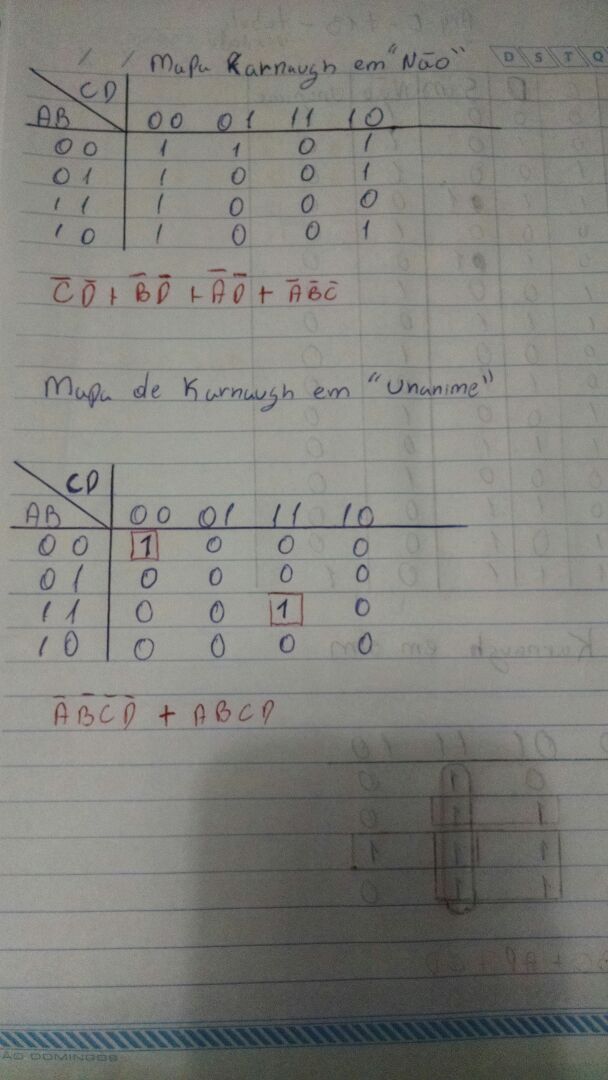 Mapa Karnaugh em "Não"
D S T Q
CD
AB 00 01 11 10
00 1 1 0 1
01 1 0 0 1
11 1 0 0 0
10 1 0 0 1
C̅D̅ + B̅D̅ + A̅D̅ + A̅B̅C̅
Mapa de Karnaugh em "Unanime"
CD
AB 00 01 11 10
00 1 0 0 0
01 0 0 0 0
11 0 0 1 0
10 0 0 0 0
A̅B̅C̅D̅ + ABCD
ÃO DOMINGOS